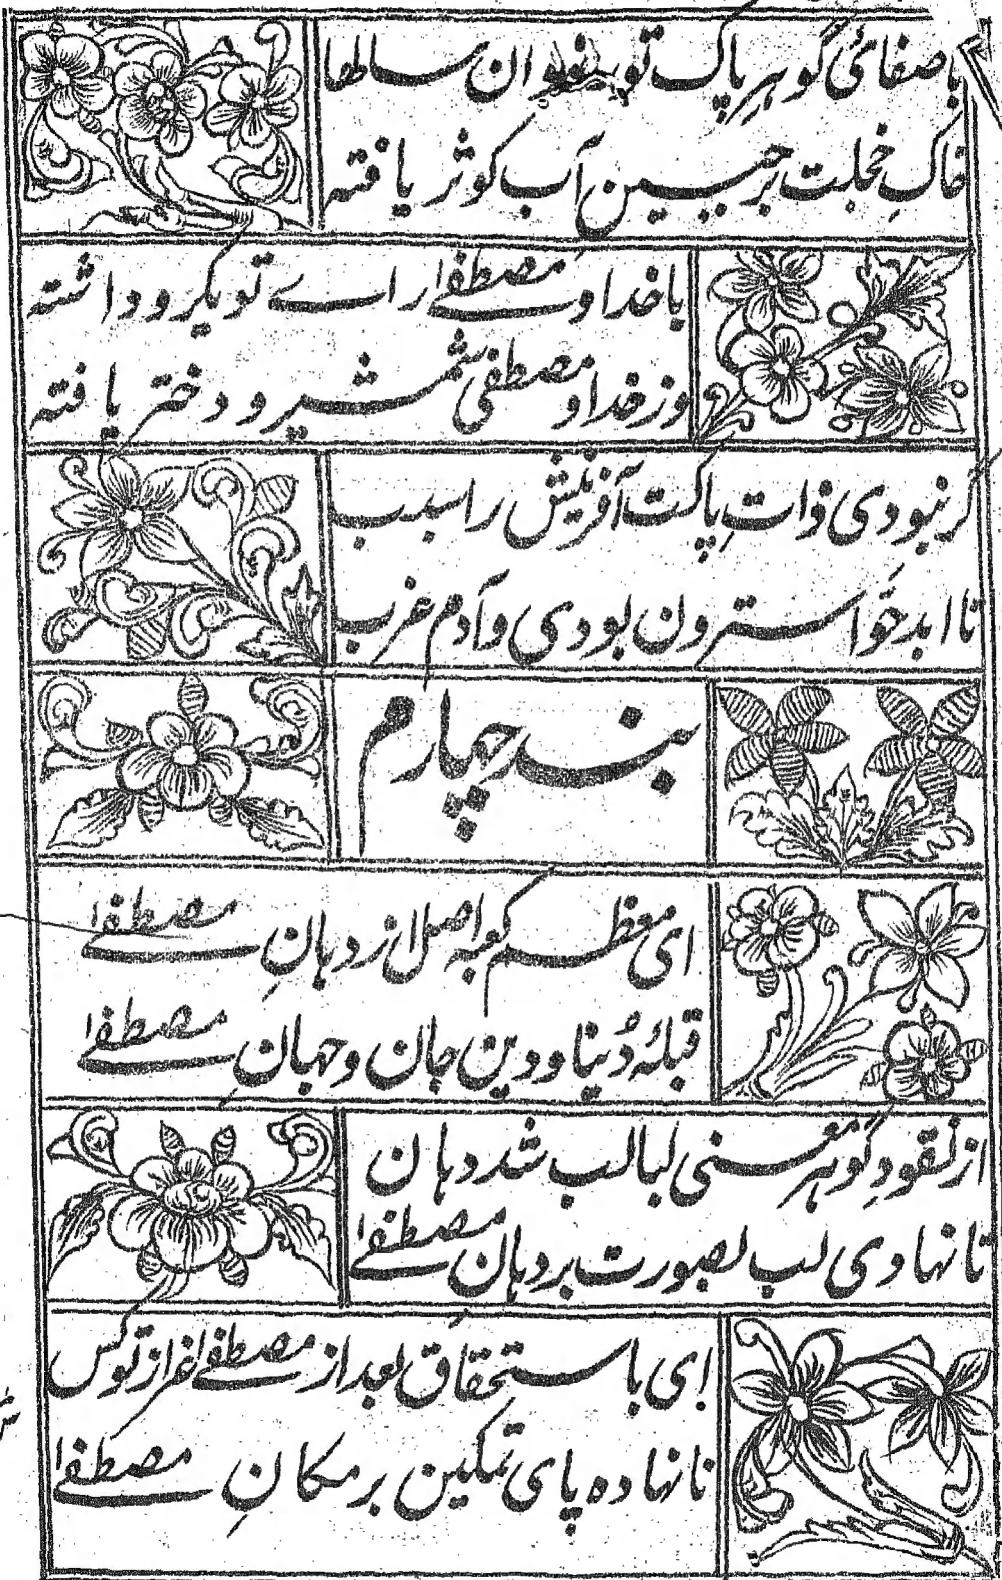 با صفائی گوہرِ پاک تو ان سالها
خاکِ خجلت بر جبین آب کوثر یافته
با خدا و مصطفیٰ را اے تو یکرو داشته
وز خدا و مصطفی شمشیر و دختر یافته
گر نبودی ذاتِ پاکت آفرینش را سبب
تا ابد حوّا سترون بودی و آدم عزب
بند چهارم
ای معظم کعبه اصل از دهانِ مصطفیٰ
قبلهٔ دُنیا و دین جان و جهانِ مصطفیٰ
از نقودِ گوهر معنی لبالب شد دهان
تا نهادی لب بصورت بر دهان مصطفیٰ
ای باستحقاق بعد از مصطفےٰ غیر از تو کس
نا نهاده پای تمکین بر مکانِ مصطفیٰ